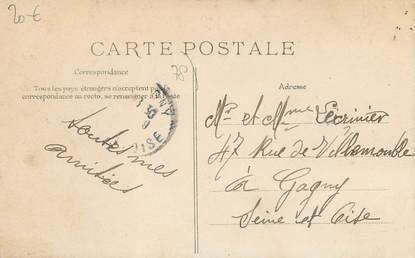 20 €
78
CARTE POSTALE
Correspondance
Tous les pays étrangers n'acceptent pas
correspondance au recto, se renseigner à la poste
Adresse
toutes mes
amitiés
Mr et Mme Lécrinier
47 Rue de Villemomble
à Gagny
Seine et Oise